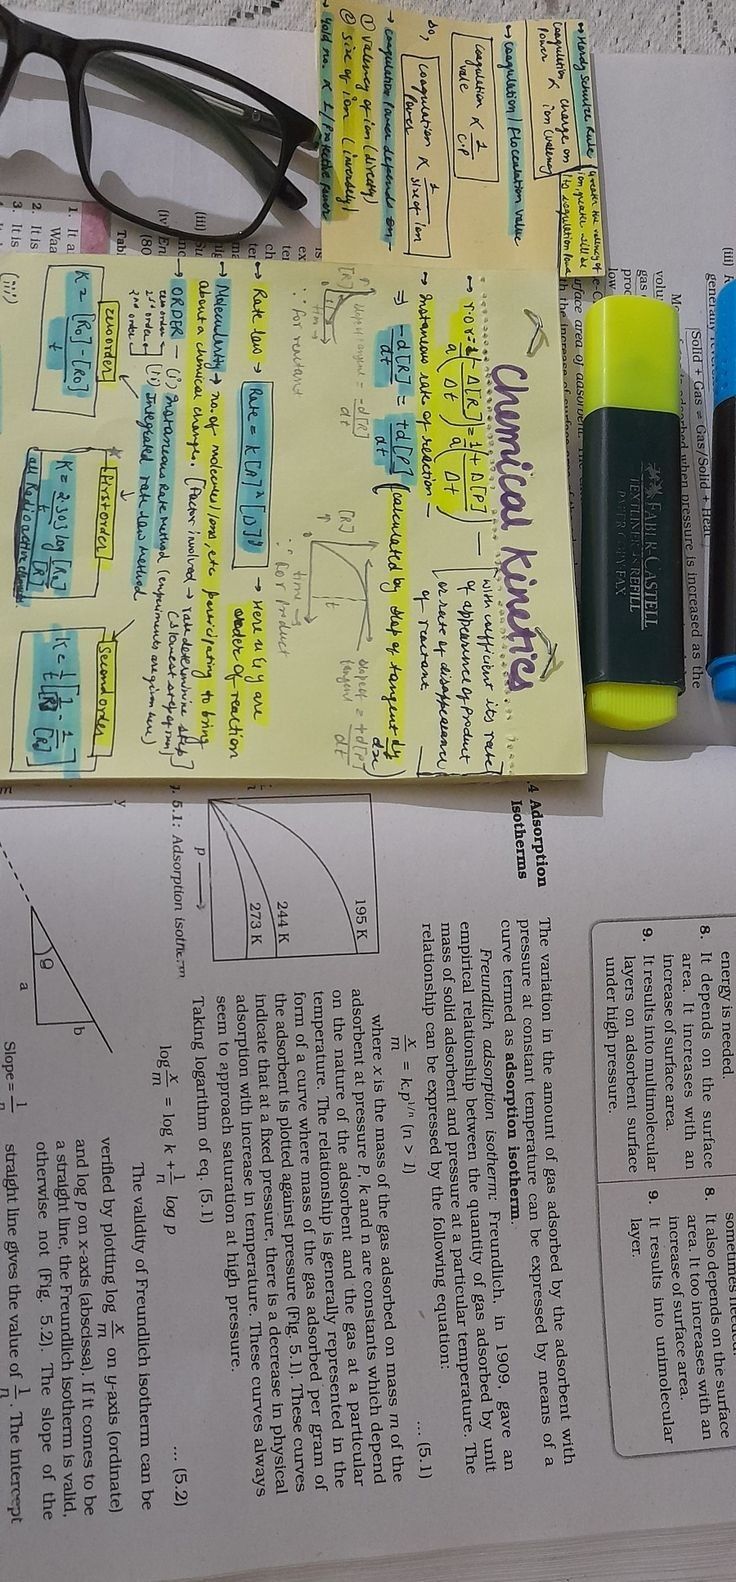 Hardy Schulze Rule (Greater the valency of
ion, greater will be
its coagulation power
Coagulation ∝ charge on
Power ion (valency)
→ Coagulation/Flocculation value
Coagulation ∝ 1/C.P
value
So, Coagulation ∝ 1/size of ion
Power
→ coagulation power depends on -
① valency of ion (directly)
② size of ion (inversely)
→ Gold no. ∝ 1/Protective power
Chemical Kinetics
→ r.o.r = 1/a (-Δ[R]/Δt) = 1/a (+Δ[P]/Δt) —
with coefficient its rate
of appearence of product
or rate of disappearance
of reactant
→ Instaneous rate of reaction —
⇒ -d[R]/dt = +d[P]/dt (calculated by slop of tangent dy/dx)
[R]
slope of tangent = -d[R]/dt
time →
∵ For reactant
[R]
slope of tangent = +d[P]/dt
time →
∵ For Product
→ Rate law → Rate = k[A]ˣ[B]ʸ → Here x & y are
order of reaction
→ Molecularity → no. of molecules/ions, etc participating to bring
about a chemical change. [Factor involved → rate determine step]
(slowest step of rxn)
→ ORDER — (i) Instaneous Rate method (experiments are given here)
(ii) Integrated rate law method
zero order
K = [R₀] - [R]/t
First order
K = 2.303/t log [R₀]/[R]
all Radioactive
Second order
K = 1/t [1/[R] - 1/[R₀]]
(iii)
Solid + Gas ⇌ Gas/Solid + Heat
when pressure is increased as the
FABER-CASTELL
TEXTLINER REFILL
energy is needed.
8. It depends on the surface
area. It increases with an
increase of surface area.
9. It results into multimolecular
layers on adsorbent surface
under high pressure.
8. It also depends on the surface
area. It too increases with an
increase of surface area.
9. It results into unimolecular
layer.
.4 Adsorption
Isotherms
The variation in the amount of gas adsorbed by the adsorbent with
pressure at constant temperature can be expressed by means of a
curve termed as adsorption isotherm.
Freundlich adsorption isotherm: Freundlich, in 1909, gave an
empirical relationship between the quantity of gas adsorbed by unit
mass of solid adsorbent and pressure at a particular temperature. The
relationship can be expressed by the following equation:
x/m = k.p^1/n (n > 1) ... (5.1)
where x is the mass of the gas adsorbed on mass m of the
adsorbent at pressure P, k and n are constants which depend
on the nature of the adsorbent and the gas at a particular
temperature. The relationship is generally represented in the
form of a curve where mass of the gas adsorbed per gram of
the adsorbent is plotted against pressure (Fig. 5.1). These curves
indicate that at a fixed pressure, there is a decrease in physical
adsorption with increase in temperature. These curves always
seem to approach saturation at high pressure.
195 K
244 K
273 K
p →
5.1: Adsorption isotherm
Taking logarithm of eq. (5.1)
log x/m = log k + 1/n log p ... (5.2)
The validity of Freundlich isotherm can be
verified by plotting log x/m on y-axis (ordinate)
and log p on x-axis (abscissa). If it comes to be
a straight line, the Freundlich isotherm is valid,
otherwise not (Fig. 5.2). The slope of the
straight line gives the value of 1/n. The intercept
y
θ
b
a
Slope = 1/n